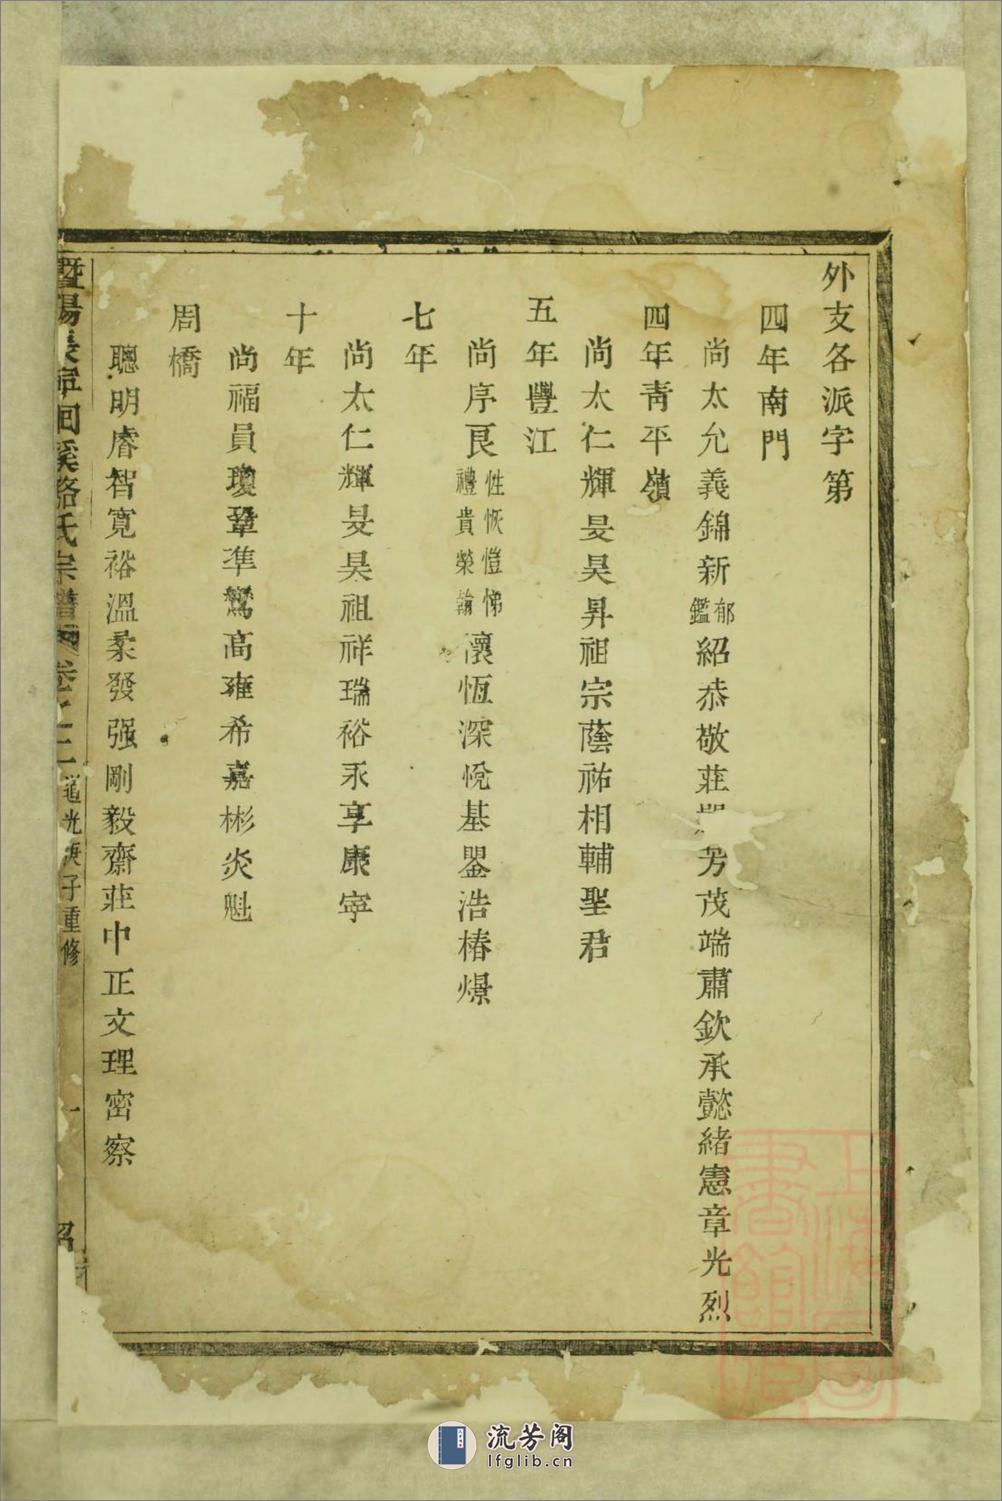 外支各派字第
四年南門
尚太允義錦新郁鑑紹恭敬莊芳茂端肅欽承懿緒憲章光烈
四年青平嶺
尚太仁輝旻昊昇祖宗蔭祐相輔聖君
五年豐江
尚序良性恢愷悌禮貴榮翰懷恆深悅基曌浩椿燝
七年
尚太仁輝旻昊祖祥瑞裕永享康寧
十年
尚福員瓊鞏準鸞高雍希嘉彬炎魁
周橋
聰明睿智寛裕溫柔發强剛毅齋莊中正文理密察
暨陽回溪駱氏宗譜卷之二光庚子重修
一
流芳阁
lfglib.cn